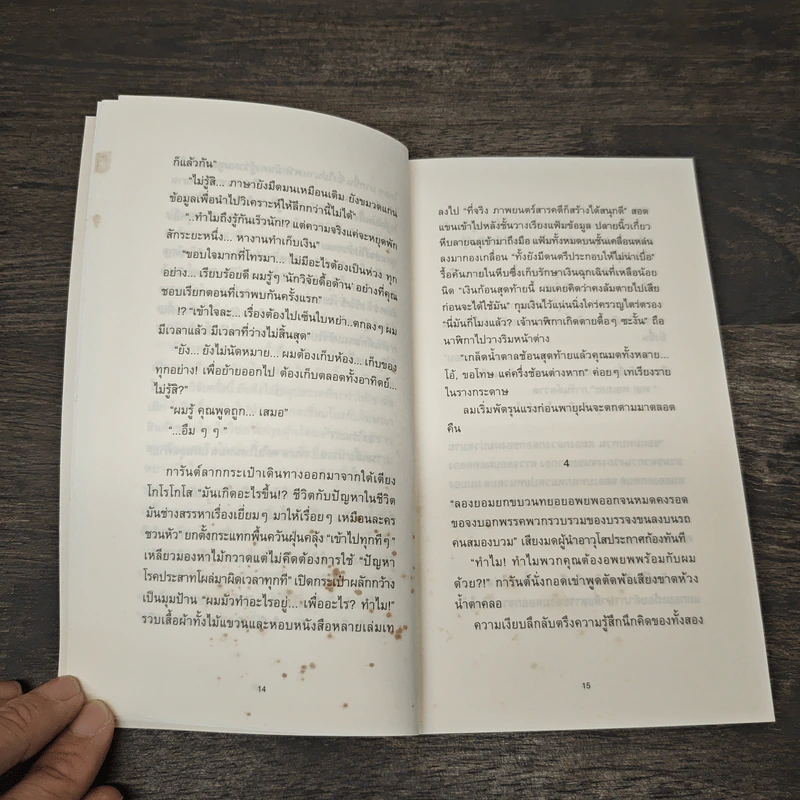 ก็แล้วกัน"
"ไม่รู้สิ... ภาษายังมืดมนเหมือนเดิม ยังขมวดแก่น
ข้อมูลเพื่อนำไปวิเคราะห์ให้ลึกกว่านี้ไม่ได้"
"..ทำไมถึงรู้กันเร็วนัก!? แต่ความจริงแค่จะหยุดพัก
สักระยะหนึ่ง... หางานทำเก็บเงิน"
"ขอบใจมากที่โทรมา... ไม่มีอะไรต้องเป็นห่วง ทุก
อย่าง... เรียบร้อยดี ผมรู้ๆ 'นักวิจัยดื้อด้าน' อย่างที่คุณ
ชอบเรียกตอนที่เราพบกันครั้งแรก"
!? "เข้าใจละ... เรื่องต้องไปเซ็นใบหย่า..ตกลงๆ ผม
มีเวลาแล้ว มีเวลาที่ว่างไม่สิ้นสุด"
"ยัง... ยังไม่นัดหมาย... ผมต้องเก็บห้อง... เก็บของ
ทุกอย่าง! เพื่อย้ายออกไป ต้องเก็บตลอดทั้งอาทิตย์...
ไม่รู้สิ?"
"ผมรู้ คุณพูดถูก... เสมอ"
"...อืม ๆ ๆ "
การันต์ลากกระเป๋าเดินทางออกมาจากใต้เตียง
โกโรโกโส "มันเกิดอะไรขึ้น!? ชีวิตกับปัญหาในชีวิต
มันช่างสรรหาเรื่องเยี่ยมๆ มาให้เรื่อยๆ เหมือนละคร
ชวนหัว" ยกตั้งกระแทกพื้นควันฝุ่นคลุ้ง "เข้าไปทุกทีๆ"
เหลียวมองหาไม้กวาดแต่ไม่คิดต้องการใช้ "ปัญหา
โรคประสาทโผล่มาผิดเวลาทุกที" เปิดกระเป๋าผลักกว้าง
เป็นมุมป้าน "ผมมัวทำอะไรอยู่... เพื่ออะไร? ทำไม!"
รวบเสื้อผ้าทั้งไม้แขวนและหอบหนังสือหลายเล่มเท
14
ลงไป "ที่จริง ภาพยนตร์สารคดีก็สร้างได้สนุกดี" สอด
แขนเข้าไปหลังชั้นวางเรียงแฟ้มข้อมูล ปลายนิ้วเกี่ยว
หีบลายฉลุเข้ามาถึงมือ แฟ้มทั้งหมดบนชั้นเคลื่อนหล่น
ลงมากองเกลื่อน "ทั้งยังมีดนตรีประกอบให้ไม่น่าเบื่อ"
รื้อค้นภายในหีบซึ่งเก็บรักษาเงินฉุกเฉินที่เหลือน้อย
นิด "เงินก้อนสุดท้ายนี้ ผมเคยคิดว่าคงล้มตายไปเสีย
ก่อนจะได้ใช้มัน" กุมเงินไว้แน่นนิ่งใคร่ครวญไตร่ตรอง
"นี่มันกี่โมงแล้ว? เจ้านาฬิกาเกิดตายดื้อๆ ซะงั้น" ถือ
นาฬิกาไปวางริมหน้าต่าง
"เกล็ดน้ำตาลช้อนสุดท้ายแล้วคุณมดทั้งหลาย...
โอ้, ขอโทษ แค่ครึ่งช้อนต่างหาก" ค่อยๆ เทเรียงราย
ในรางกระดาษ
ลมเริ่มพัดรุนแรงก่อนพายุฝนจะตกตามมาตลอด
คืน
4
"ลองยอมยกขบวนทยอยอพยพออกจนหมดคงรอด
ขอจงบอกพรรคพวกรวบรวมของบรรจงขนลงบนรถ
คนสมองบวม" เสียงมดผู้นำอาวุโสประกาศก้องทันที
"ทำไม! ทำไมพวกคุณต้องอพยพพร้อมกับผม
ด้วย?!" การันต์นั่งกอดเข่าพูดตัดพ้อเสียงขาดห้วง
น้ำตาคลอ
ความเงียบลึกลับตรึงความรู้สึกนึกคิดของทั้งสอง
15